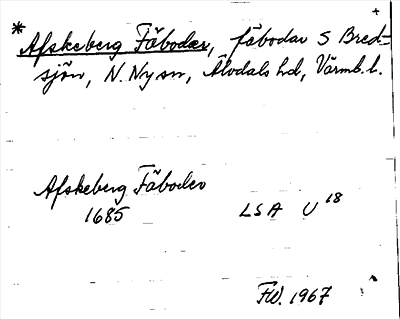 +
* Afskeberg Fäboder, fäbodar S Bred-
sjön, N. Ny sn, Älvdals hd, Värml. l.
Afskeberg Fäboder
1685 LSA U 18
FW. 1967